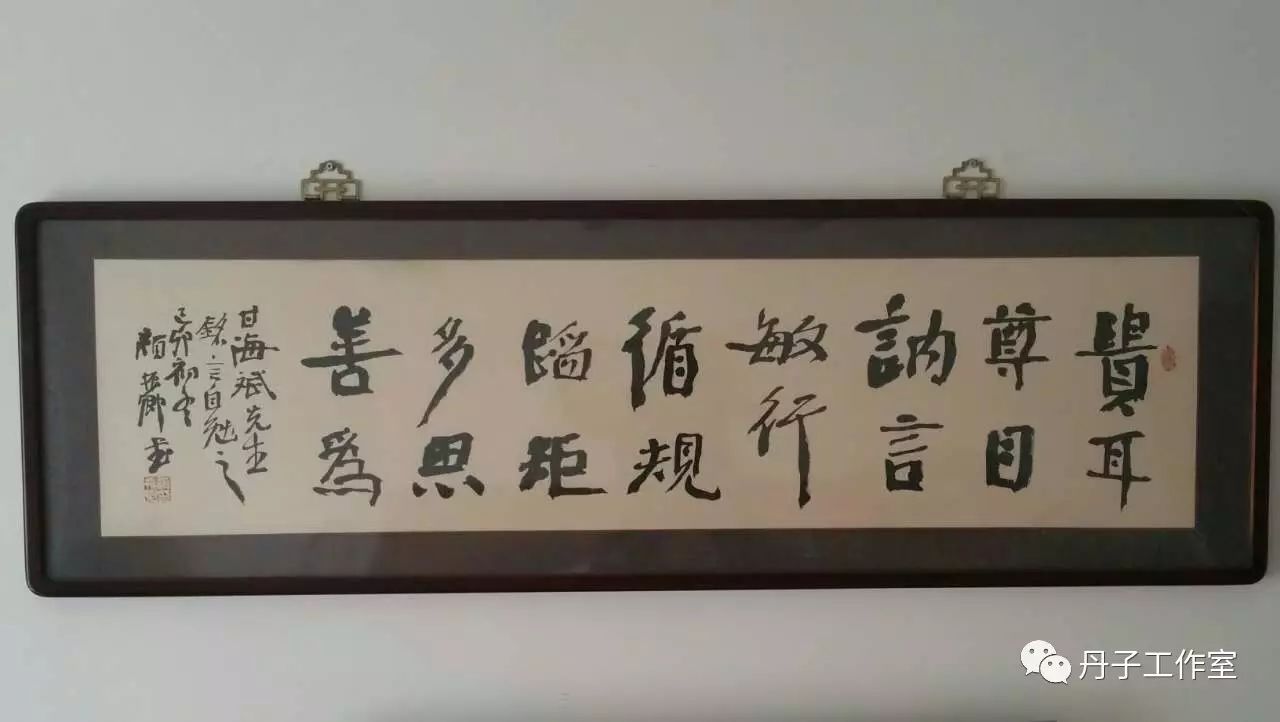 貴耳
尊目
訥言
敏行
循規
蹈矩
多思
善為
甘海斌先生
銘言自勉之
己卯初冬
顏振卿書
丹子工作室